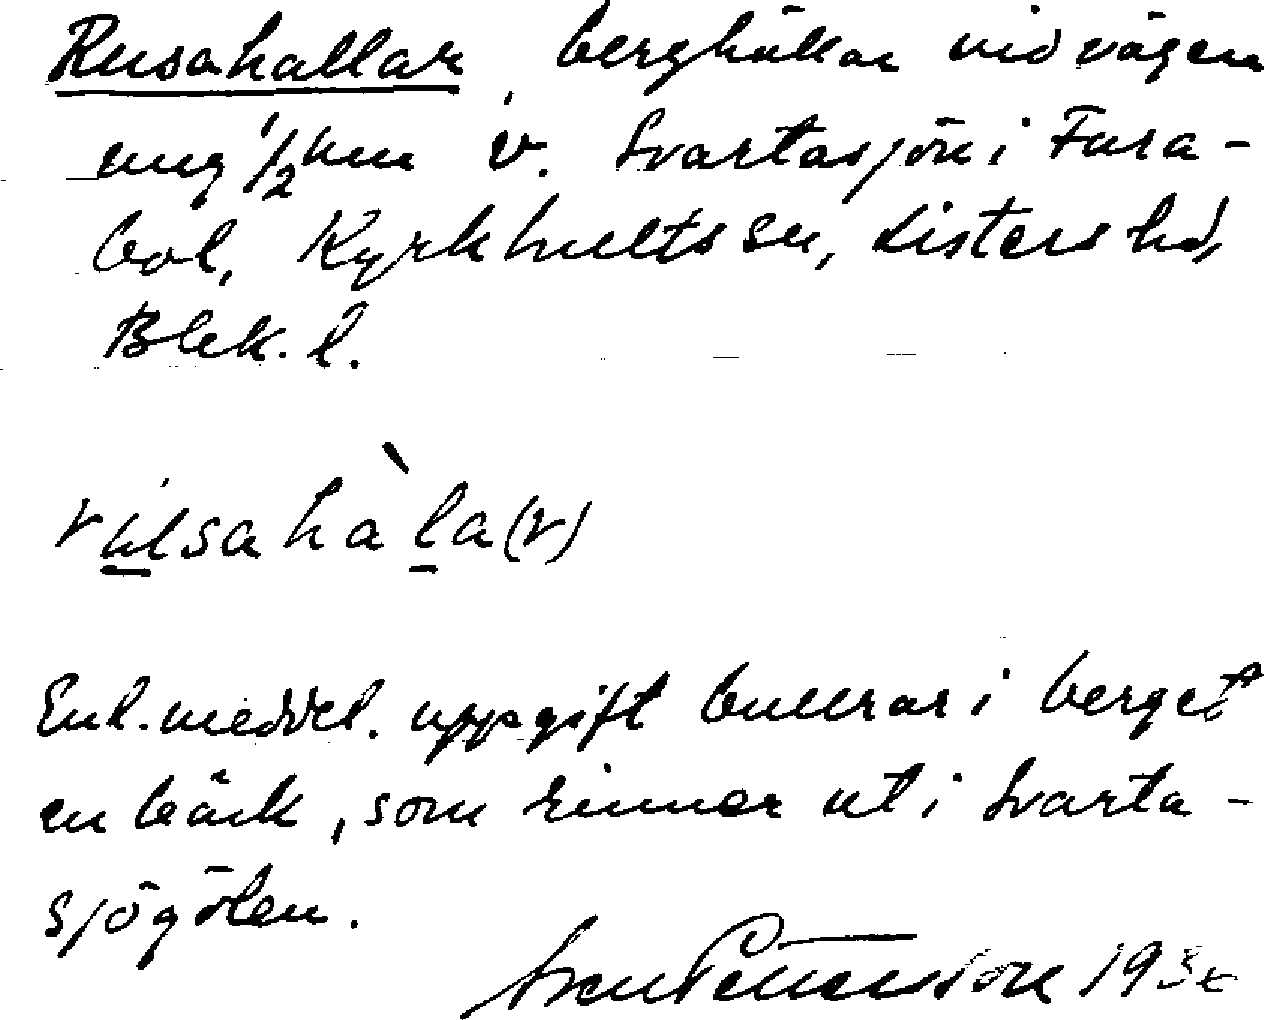 Rusahallar berghällar vid vägen
ung 1/2 km v. Svartasjön i Fura-
bol, Kyrkhults sn, Listers hd,
Blek. l.
rúlsahàla(r)
Enl. meddel. uppgift bullrar i berget
en bäck, som rinner ut i Svarta-
sjögölen.
Sven Pettersson